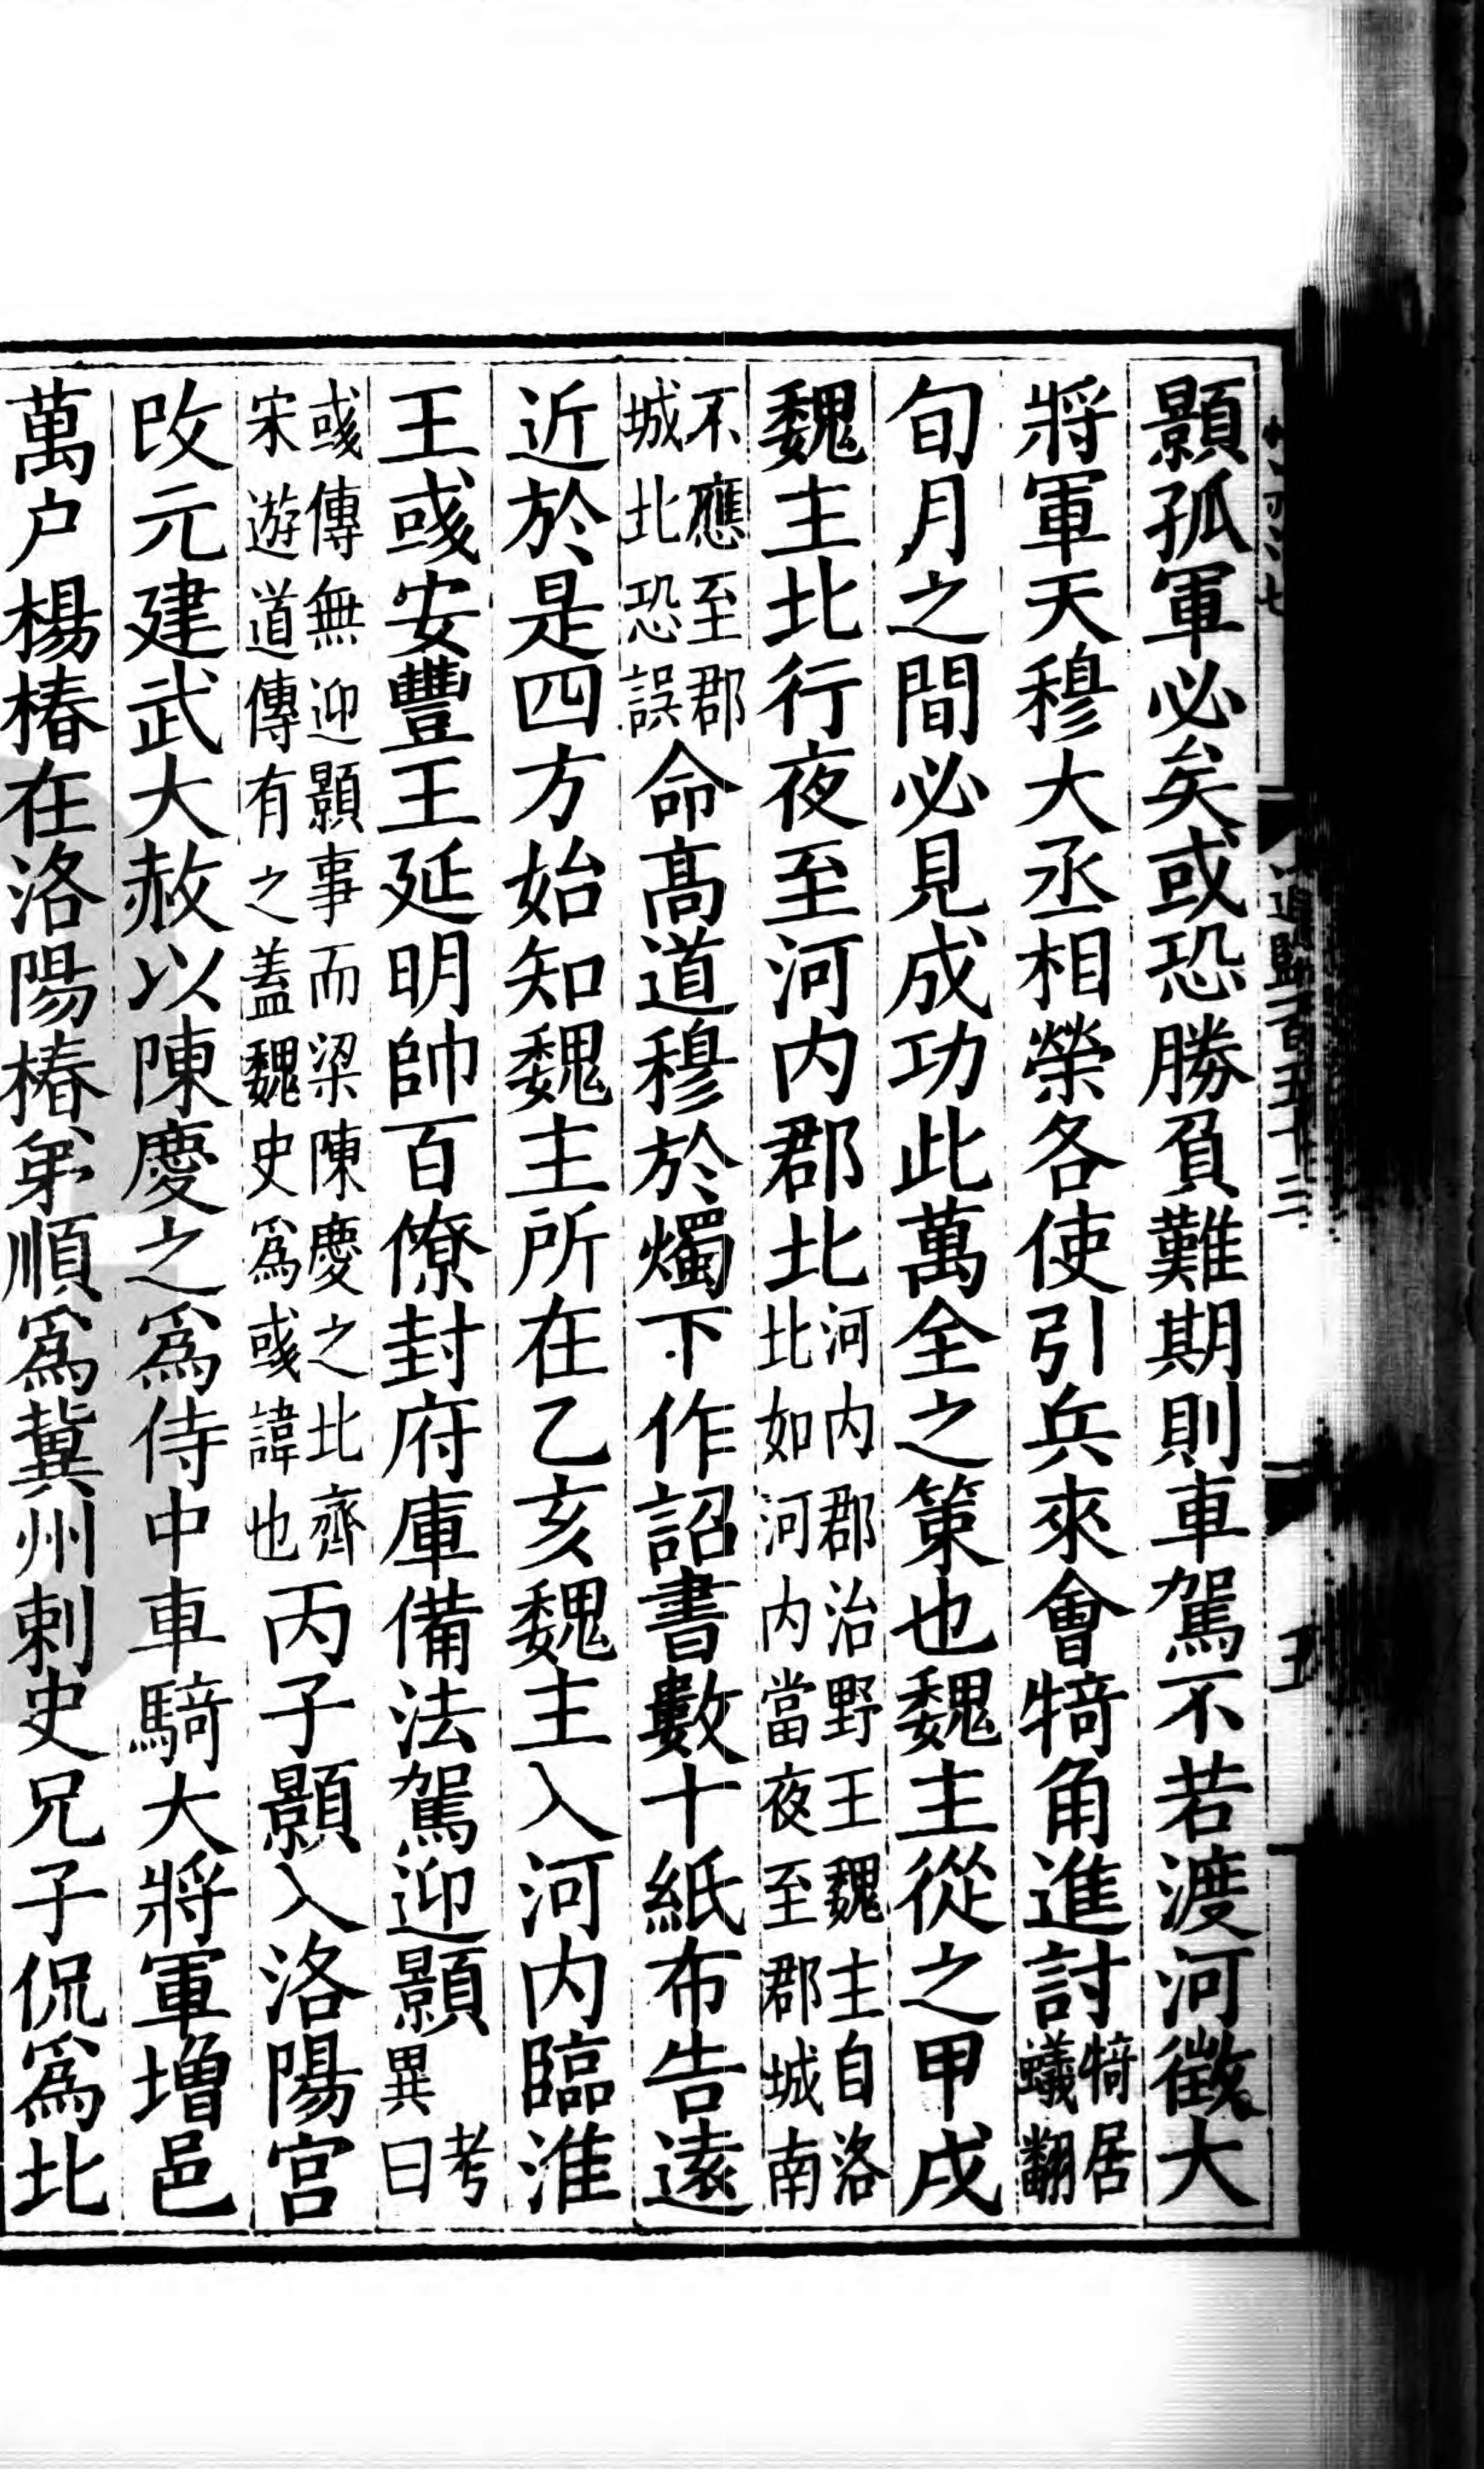 顥孤軍必矣或恐勝負難期則車駕不若渡河徵大
將軍天穆大丞相榮各使引兵來會犄角進討犄居蟻翻
旬月之間必見成功此萬全之策也魏主從之甲戌
魏主北行夜至河内郡北河内郡治野王魏主自洛北如河内當夜至郡城南
不應至郡城北恐誤命髙道穆於燭下作詔書數十紙布告遠
近於是四方始知魏主所在乙亥魏主入河内臨淮
王彧安豐王延明帥百僚封府庫備法駕迎顥考異曰
彧傳無迎顥事而梁陳慶之北齊宋遊道傳有之蓋魏史爲彧諱也丙子顥入洛陽宫
改元建武大赦以陳慶之爲侍中車騎大將軍增邑
萬户楊椿在洛陽椿弟順爲冀州刺史兄子侃爲北
通鑑一百五十三
五